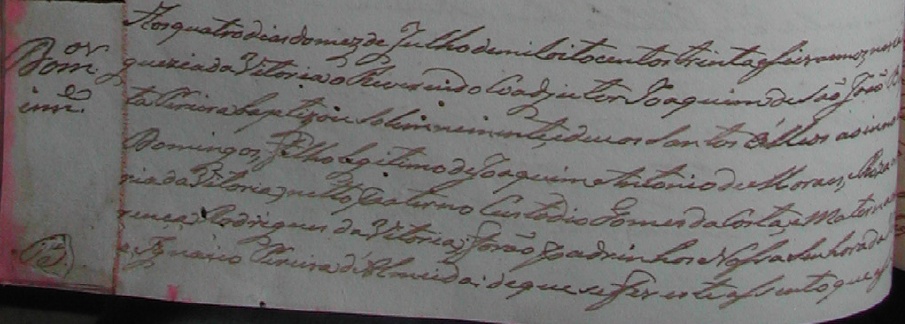 Dom.os
inn.e
Aos quatro dias do mez de Julho de mil oito centos trinta e seis annos nesta
guezia da Vitoria o Reverendo Coadjutor Joaquim de São João Ba
ta Pereira baptizou solemnemente, e deu os Santos Olleos ao inno
Domingos, filho legitimo de Joaquim Antonio de Moraes, e
ria da Vitoria; netto Paterno Custodio Gomes da Costa, e Materno
Rodrigues da Vitoria; forão Padrinhos Nossa Senhora da
e Ignacio Pereira d'Almeida: de que se fez este assento que